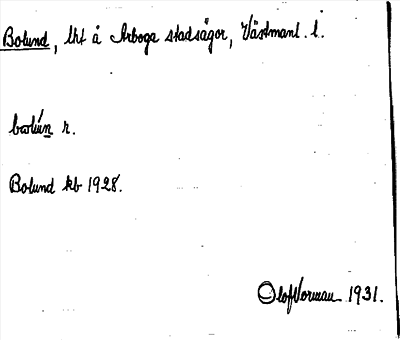 Bolund, lht å Arboga stadsägor, Västmanl. l.
bωlún r.
Bolund kb 1928.
Olof Norman 1931.